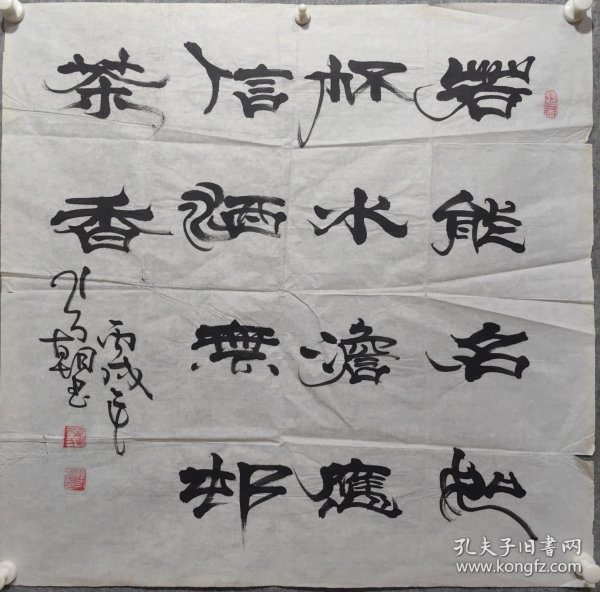 若能名也
杯水澹應
信酒無邨
茶香
丙戌年
朝书
孔夫子旧书网
www.kongfz.com